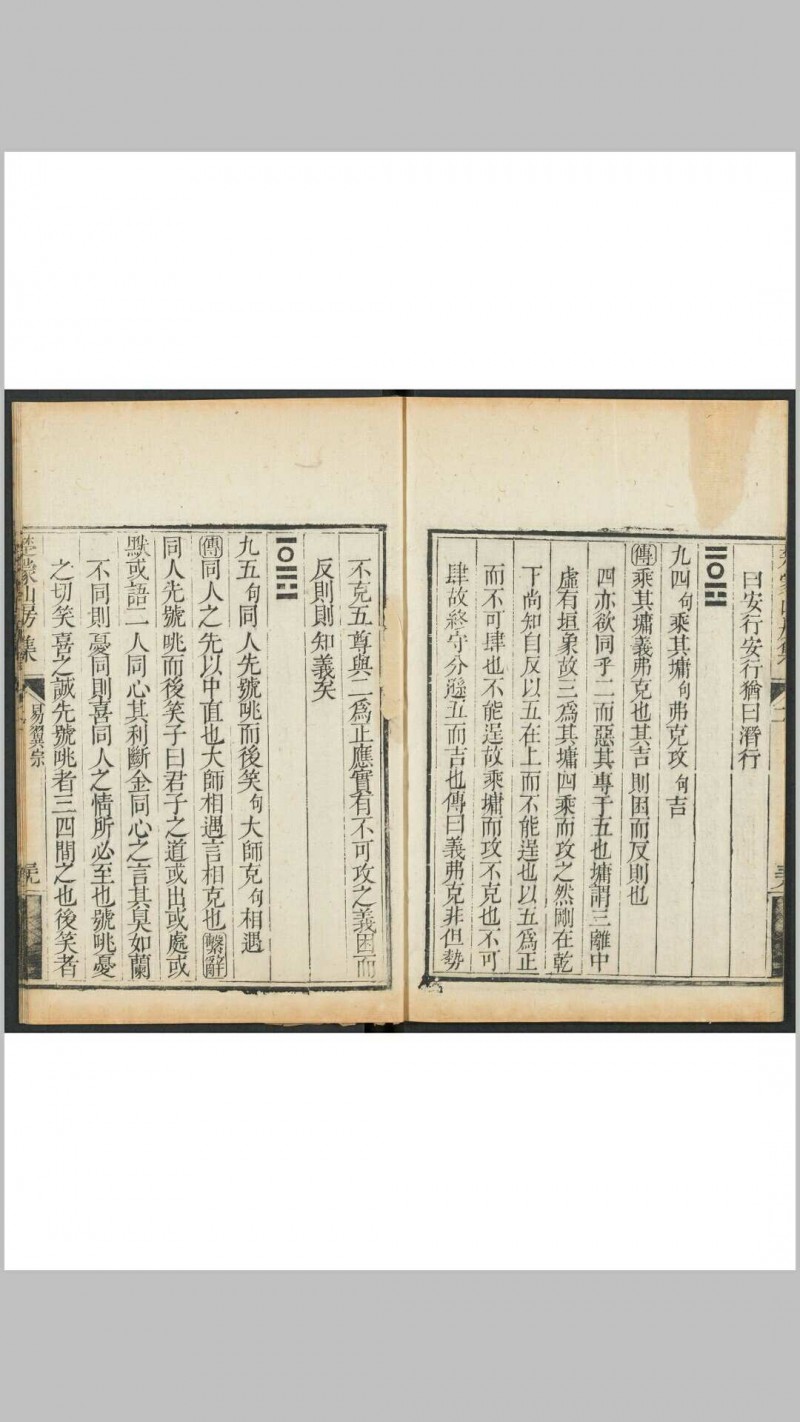 曰安行安行猶曰潛行
九四句乘其墉句弗克攻句吉
傳乘其墉義弗克也其吉則困而反則也
四亦欲同乎二而惡其專于五也墉謂三離中
虛有垣象故三爲其墉四乘而攻之然剛在乾
下尚知自反以五在上而不能逞也以五爲正
而不可肆也不能逞故乘墉而攻不克也不可
肆故終守分遜五而吉也傳曰義弗克非但勢
不克五尊與二爲正應實有不可攻之義困而
反則則知義矣
九五句同人先號咷而後笑句大師克句相遇
傳同人之先以中直也大師相遇言相克也繫辭
同人先號咷而後笑子曰君子之道或出或處或
默或語二人同心其利斷金同心之言其臭如蘭
不同則憂同則喜同人之情所必至也號咷憂
之切笑喜之誠先號咷者三四間之也後笑者
楚蒙山房集
易翼宗